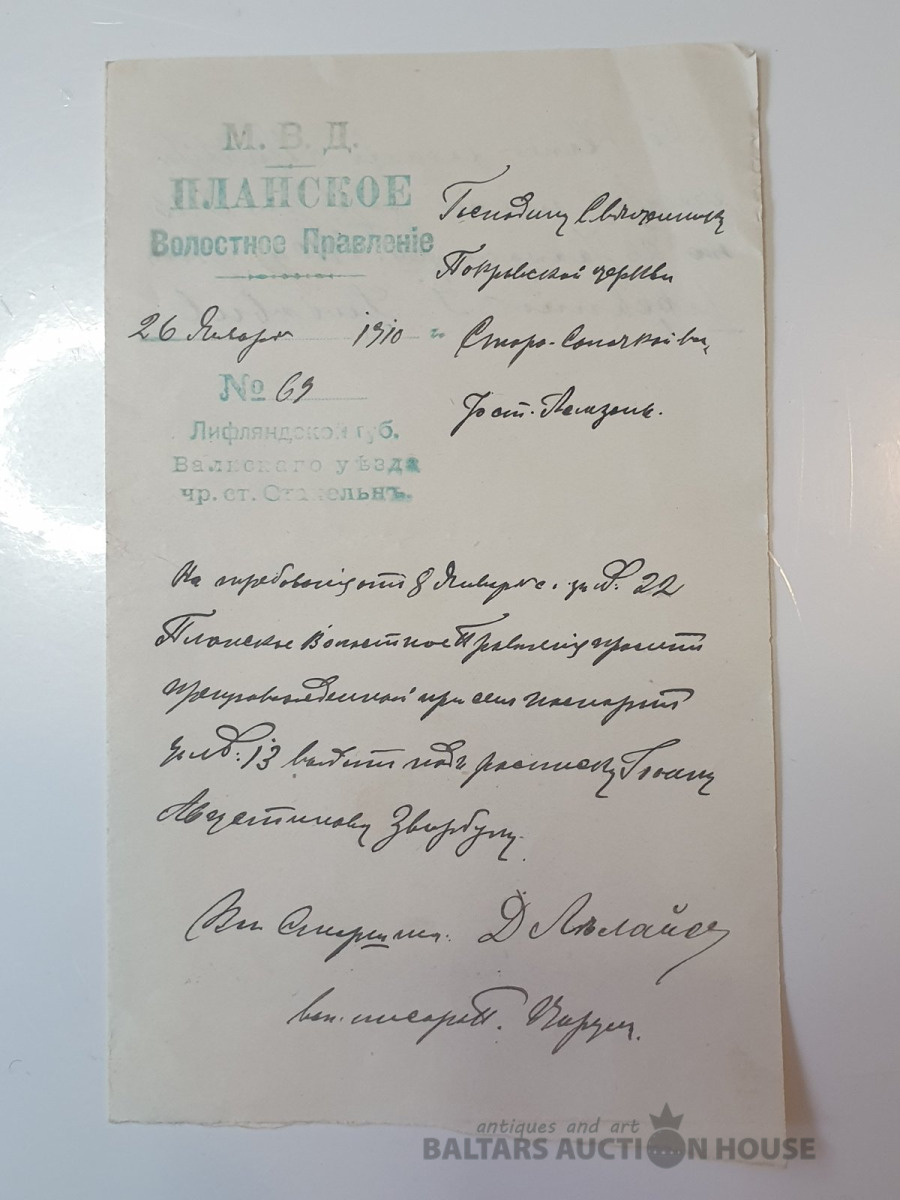 М. В. Д.
ПЛАНСКОЕ
Волостное Правленіе
26 Января 1910 г.
№ 69
Лифляндской губ.
Валкскаго уѣзда
чр. ст. Стакельнъ.
Господину Священнику
Покровской церкви
На требованіе отъ 8 Января с. г. за №. 22
Планское Волостное Правленіе проситъ
препровожденной при семъ паспортъ
за №. 13 выдать подъ росписку
Августинову
Вол Старшина: Д
вол. писарь
antiques and art
BALTARS AUCTION HOUSE